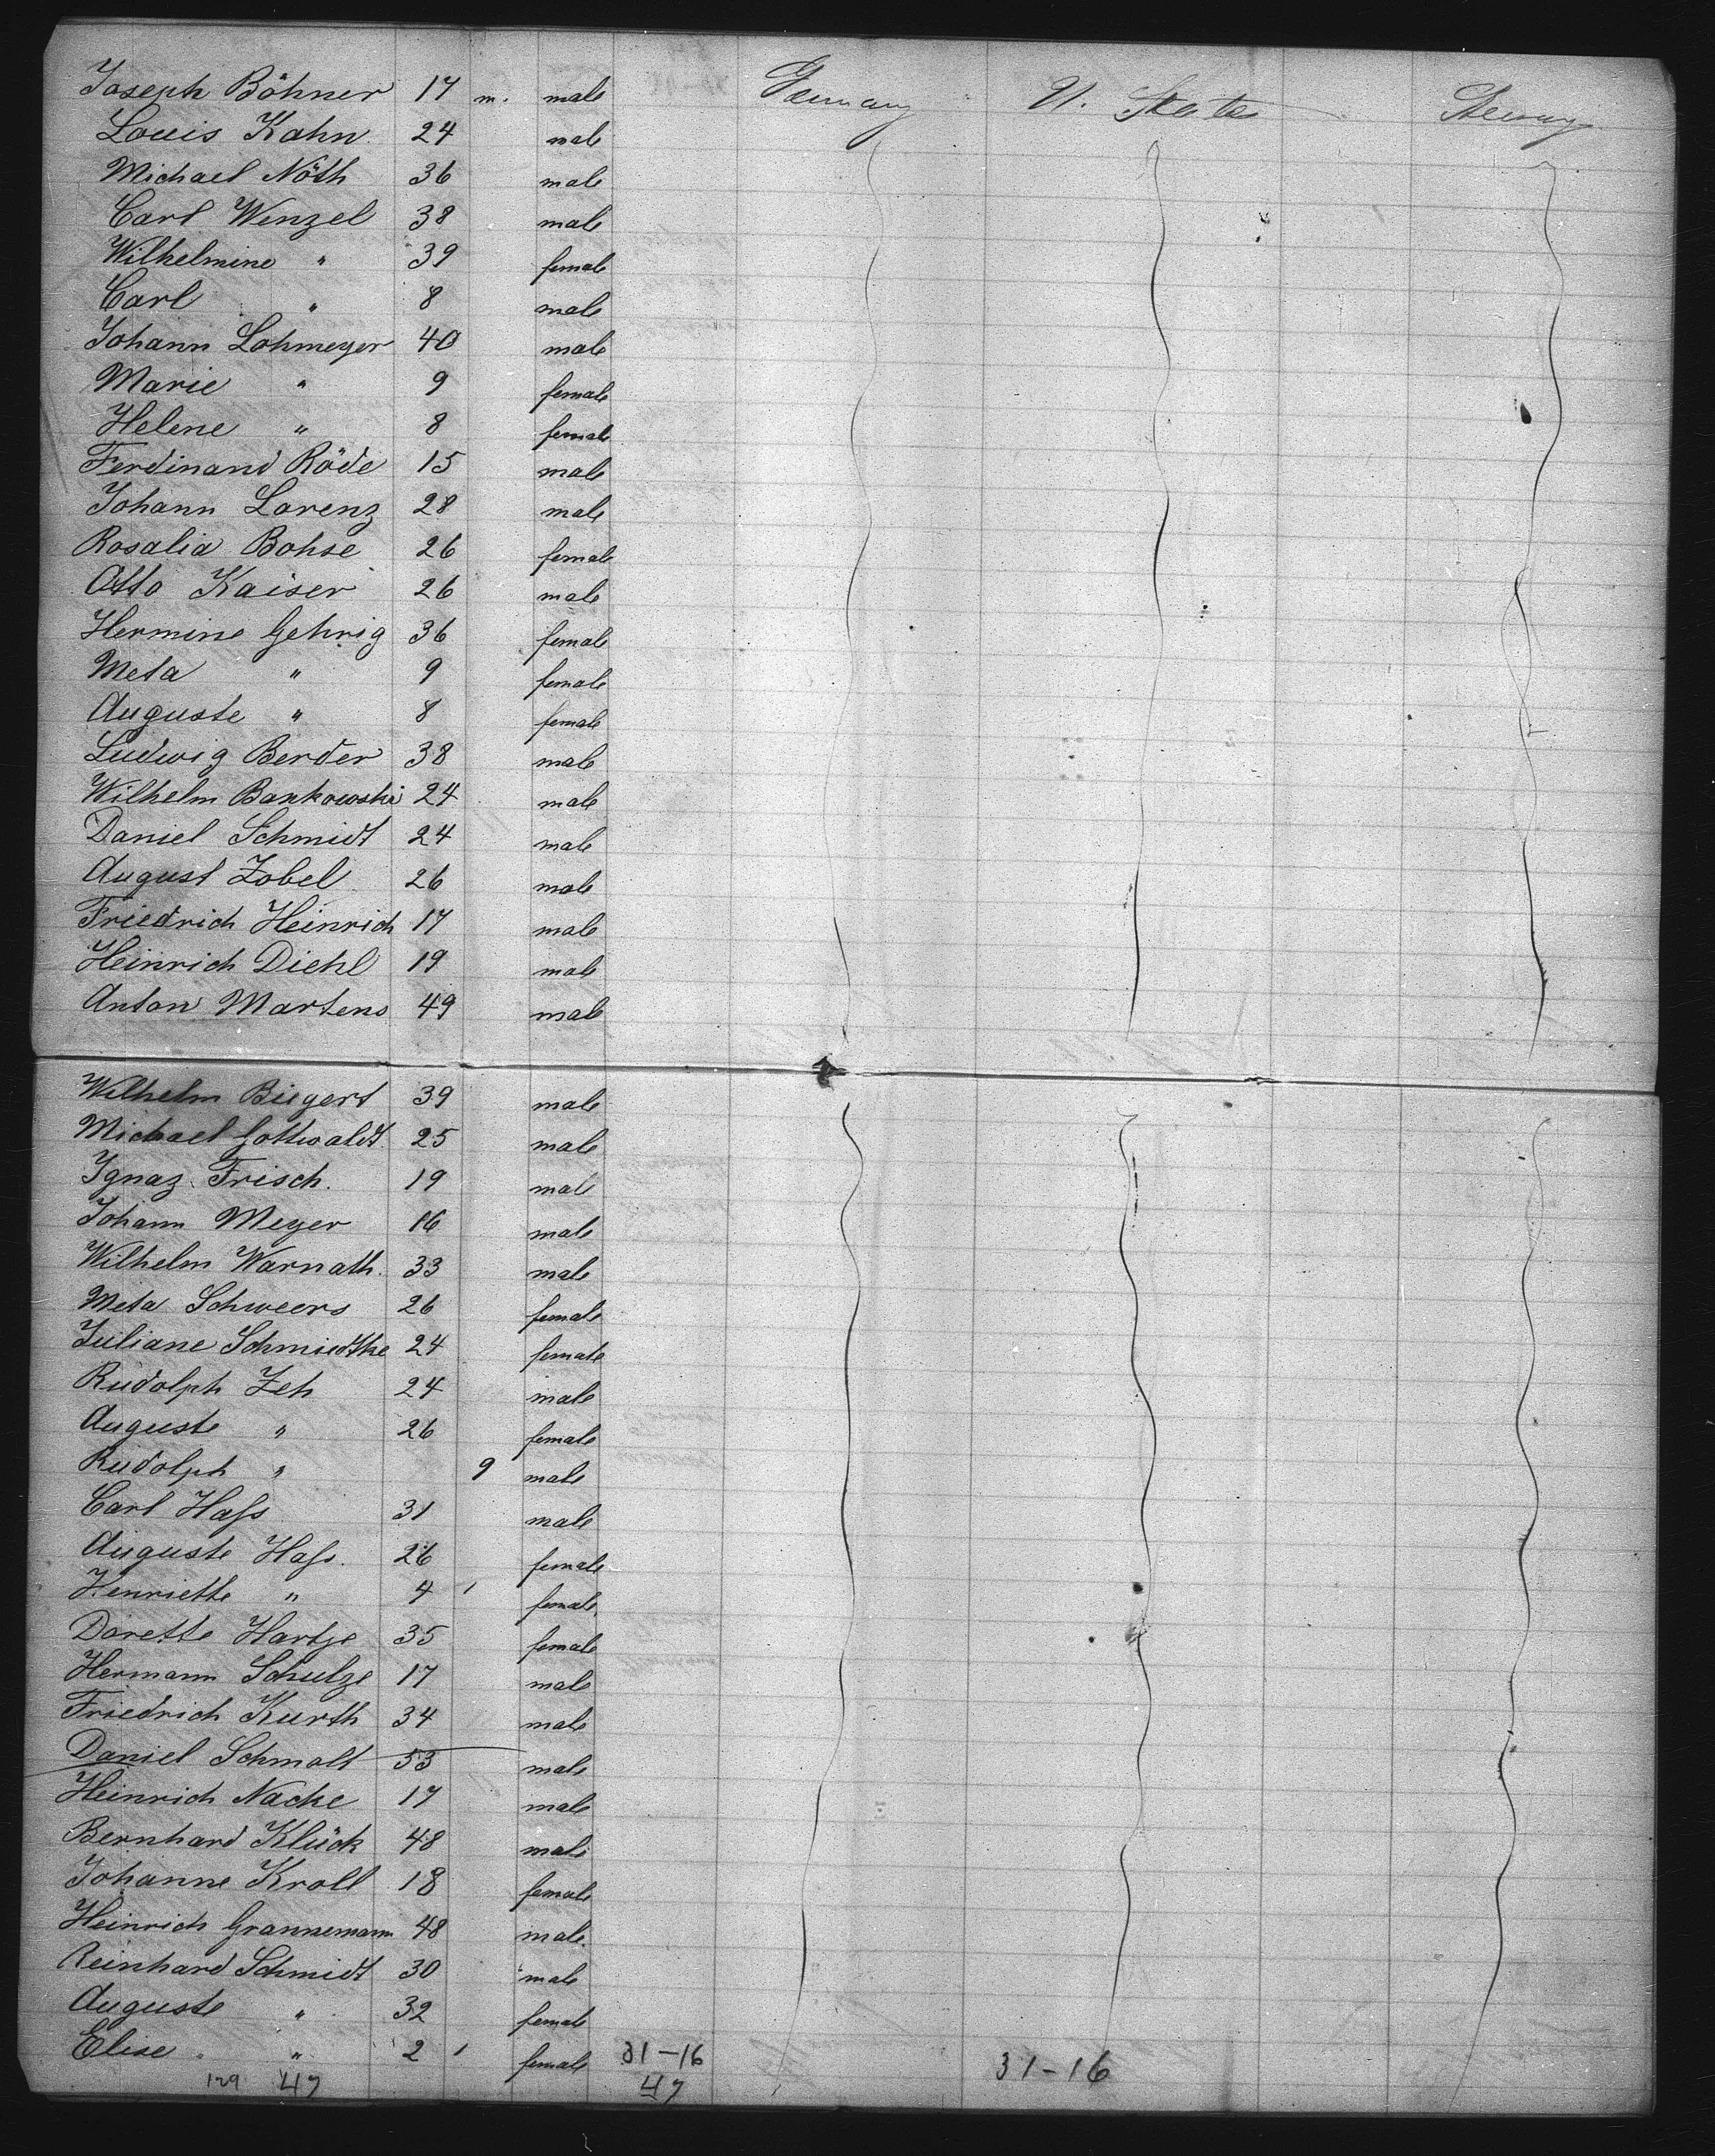 Joseph Böhner 17 m. male Germany U. States Steerage
Louis Kahn 24 male
Michael Nöth 36 male
Carl Wenzel 38 male
Wilhelmine " 39 female
Carl " 8 male
Johann Lohmeyer 40 male
Marie " 9 female
Helene " 8 female
Ferdinand Röde 15 male
Johann Lorenz 28 male
Rosalia Bohse 26 female
Otto Kaiser 26 male
Hermine Gehrig 36 female
Meta " 9 female
Auguste " 8 female
Ludwig Berder 38 male
Wilhelm Bankowski 24 male
Daniel Schmidt 24 male
August Zobel 26 male
Friedrich Heinrich 17 male
Heinrich Diehl 19 male
Anton Martens 49 male
Wilhelm Biegert 39 male
Michael Gottwaldt. 25 male
Ignaz Frisch. 19 male
Johann Meyer 16 male
Wilhelm Warnath. 33 male
Meta Schweers 26 female
Juliane Schmidthe 24 female
Rudolph Zeh 24 male
Auguste " 26 female
Rudolph " 9 male
Carl Haſs 31 male
Auguste Haſs. 26 female
Henriette " 4 female
Dorette Hartge 35 female
Hermann Schulze 17 male
Friedrich Kurth 34 male
Daniel Schmalt 53 male
Heinrich Nacke 17 male
Bernhard Klück 48 male
Johanne Kroll 18 female
Heinrich Grannemann 48 male
Reinhard Schmidt 30 male
Auguste " 32 female
Elise " 2 female 31-16 31-16
129 47 47